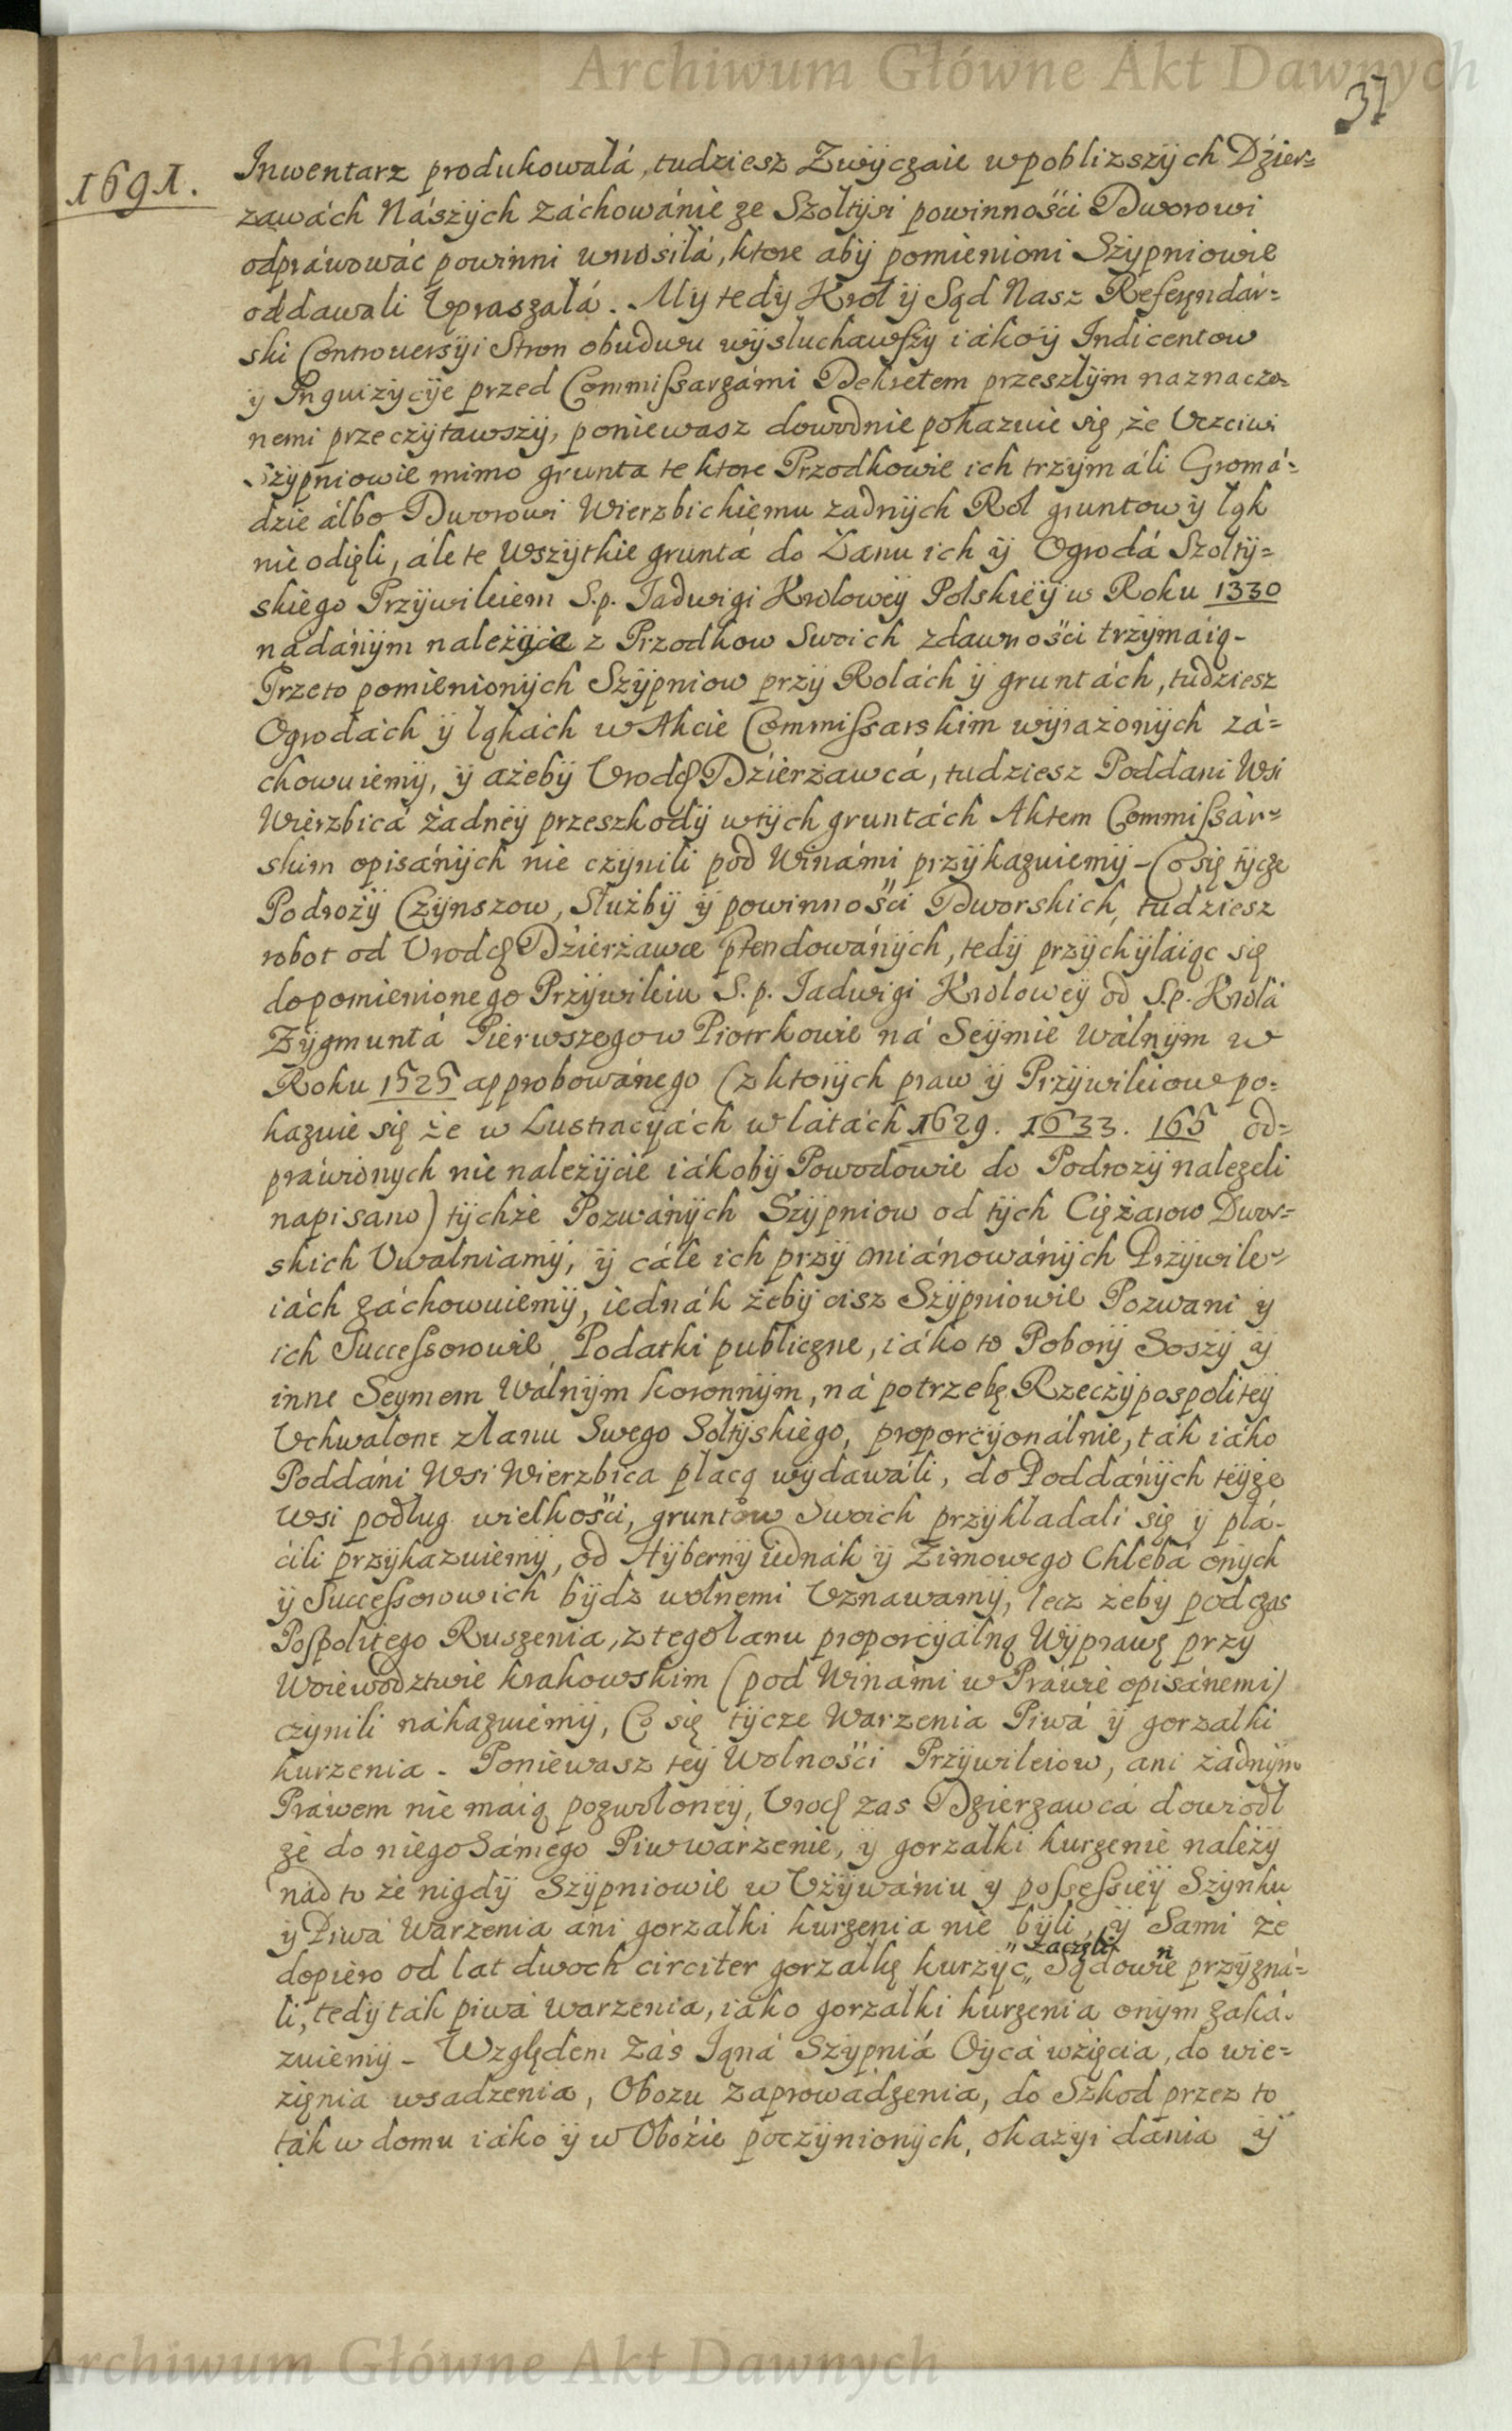 Archiwum Główne Akt Dawnych
37
1691.
Inwentarz produkowalá, tudziesz Zwÿczaie wpoblizszÿch Dzier=
zawách Nászÿch záchowánie ze Szoltÿsi powinnośći Dworowi
odpráwowáć powinni wnosilá, ktore abÿ pomienioni Szÿpniowie
oddawali Vpraszalá. Mÿ tedÿ Krol ÿ Sąd Nasz Referendár=
ski Controuersÿi Stron obudwu wÿsluchawszÿ iákoÿ Indicentow
ÿ Inquizÿcÿe przed Commißarzámi Dekretem przeszlÿm naznaczo=
nemi przeczÿtawszÿ, poniewasz dowodnie pokazuie się, że Vczciwi
Szÿpniowie mimo grunta te ktore Przodkowie ich trzÿmáli Gromá=
dzie álbo Dworowi Wierzbickiemu zadnÿch Rol gruntow ÿ ląk
nie odięli, ále te Wszÿtkie gruntá do Lanu ich ÿ Ogrodá Szoltÿ=
skiego Przÿwileiem S.p. Jadwigi Krolowéÿ Polskieÿ w Roku 1330
nadánÿm należÿce z Przodkow Swoich zdawnośći trzÿmáią-
Przeto pomienionÿch Szÿpniow przÿ Rolách ÿ gruntách, tudziesz
Ogrodách ÿ ląkách w Akcie Commißarskim wÿrażonÿch zá=
chowuiemÿ, ÿ ażebÿ Vrodz Dzierżawcá, tudziesz Poddani Wsi
Wierzbicá żadneÿ przeszkodÿ wtÿch gruntách Aktem Commißár=
skim opisánÿch nie czÿnili pod Winámi przÿkazuiemÿ - Co się tÿcze
Podrożÿ Czÿnszow, Służbÿ ÿ powinnośći Dworskich, tudziesz
robot od Vrodz Dzierżawce ptendowánÿch, tedÿ przÿchÿláiąc się
dopomienionego Przÿwileiu S.p. Jadwigi Krolowéÿ od S.p. Krolá
Zÿgmuntá Pierwszego w Piotrkowie ná Seÿmie Wálnÿm w
Roku 1525 approbowánego (z ktorÿch praw ÿ Przÿwileiow po=
kazuie się że w Lustracÿách w látách 1629. 1633. 165 od=
práwionych nie należÿcie iákobÿ Powodowie do Podrożÿ należeli
napisano) tÿchże Pozwánÿch Szÿpniow od tÿch Ciężarow Dwor=
skich Vwalniamÿ, ÿ cále ich przÿ miánowánÿch Przÿwile=
iách záchowuiemÿ, iednák żebÿ cisz Szÿpniowie Pozwani y
ich Succeßorowie, Podatki publiczne, iáko to Poborÿ Soszÿ ÿ
inne Seymem Walnÿm koronnÿm, ná potrzebę Rzeczÿpospoliteÿ
Vchwalone z lanu Swego Soltÿskiego, proporcÿonálnie, ták iáko
Poddáni Wsi Wierzbica placą wÿdawáli, do Poddánÿch teÿże
Wsi podlug wielkośći, gruntow Swoich przÿkladali się ÿ plá=
cili przÿkazuiemÿ, od Hÿbernÿ iednák ÿ Zimowego Chlebá onÿch
ÿ Succeßorow ich bÿdz wolnemi Vznawamÿ, lecz żebÿ podczas
Pospolitego Ruszenia, z tego lanu proporcÿálną Wÿprawę przy
Woiewodztwie krakowskim (pod Winámi w Práwie opisánemi)
czÿnili nákazuiemÿ, Co się tÿcze Warzenia Piwá ÿ gorzalki
kurzenia - Poniewasz teÿ Wolnośći Przÿwileiow, ani żadnÿm
Práwem nie máią pozwoloneÿ, Vrodz zas Dzierzawcá dowiodl
że do niego Sámego Piw warzenie, ÿ gorzalki kurzenie należÿ
nád to że nigdÿ Szÿpniowie w Vżÿwániu y poßeßieÿ Szÿnku
ÿ Piwá Warzenia áni gorzalki kurzenia nie bÿli, ÿ Sami że
dopiero od lat dwoch circiter gorzalkę kurzÿć „zaczęli„ Sądownie przÿzná=
li, tedÿ ták piwá warzenia, iáko gorzalki kurzenia onÿm zaká=
zuiemÿ - Względem Zás Jąná Szÿpniá Oÿcá wzięcia, do wie=
zięnia wsadzenia, Obozu Zaprowádzenia, do Szkod przez to
ták w domu iáko ÿ w Oboźie poczÿnionÿch, okazÿi dánia ÿ
Archiwum Główne Akt Dawnych